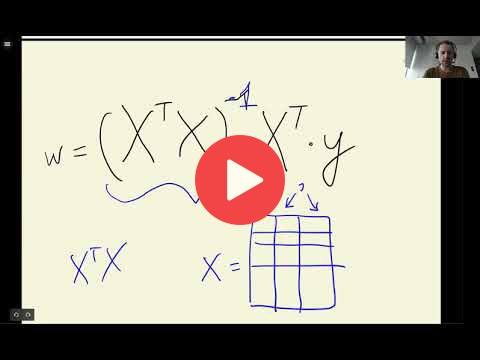 w = (XᵀX)⁻¹ Xᵀ · y
?
XᵀX X =